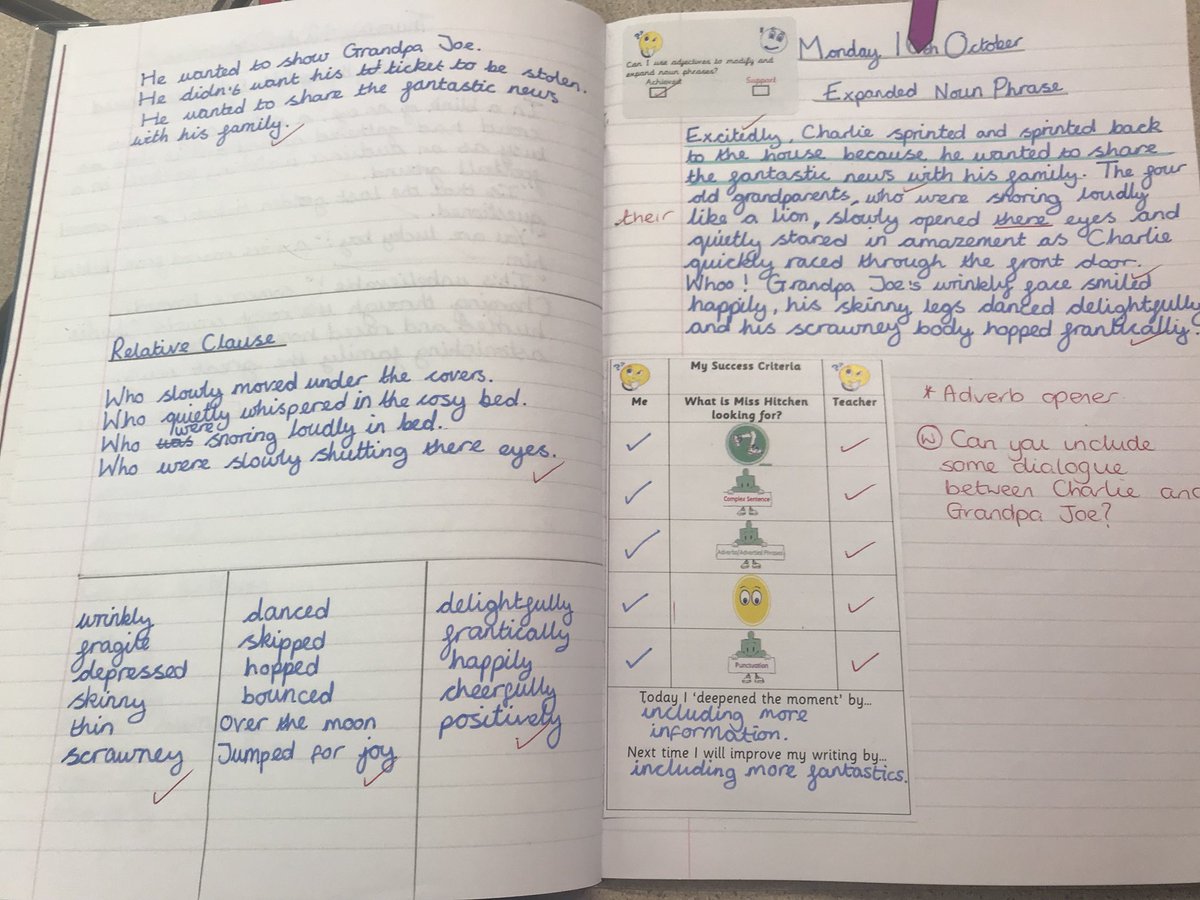 He wanted to show Grandpa Joe.
He didn't want his ticket to be stolen.
He wanted to share the fantastic news
with his family.
Relative Clause
Who slowly moved under the covers.
Who quietly whispered in the cosy bed.
were
Who was snoring loudly in bed.
Who were slowly shutting there eyes.
wrinkly
fragile
depressed
skinny
thin
scrawney
danced
skipped
hopped
bounced
Over the moon
Jumped for joy
delightfully
frantically
happily
cheerfully
positively
Can I use adjectives to modify and
expand noun phrases?
Achieved
Support
Monday 1 October
Expanded Noun Phrase
Excitidly, Charlie sprinted and sprinted back
to the house because he wanted to share
the fantastic news with his family. The four
old grandparents, who were snoring loudly
their
like a lion, slowly opened there eyes and
quietly stared in amazement as Charlie
quickly raced through the front door.
Whoo! Grandpa Joe's wrinkly face smiled
happily, his skinny legs danced delightfully
and his scrawney body hopped frantically.
My Success Criteria
Me
What is Miss Hitchen
looking for?
Teacher
Complex Sentence
Adverbs/Adverbial Phrases
Punctuation
Today I 'deepened the moment' by...
including more
information.
Next time I will improve my writing by...
including more fantastics.
* Adverb opener
W Can you include
some dialogue
between Charlie and
Grandpa Joe?